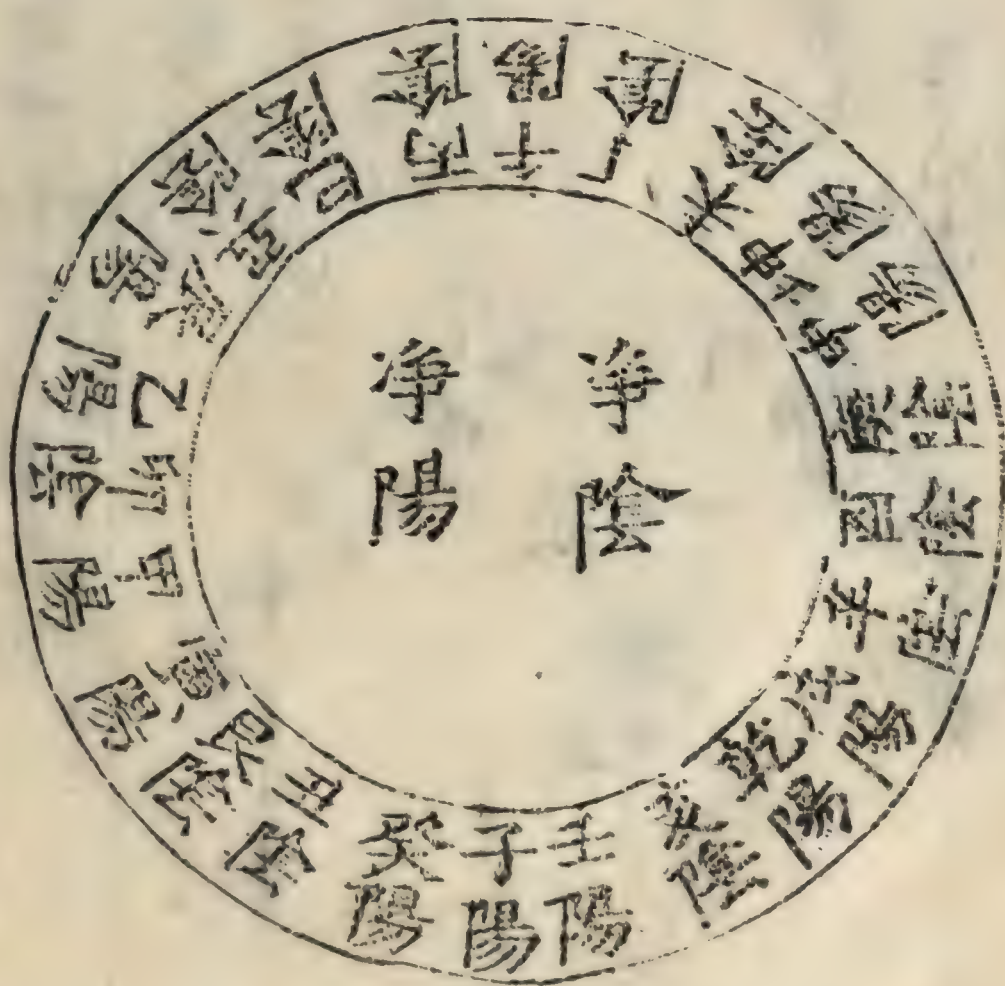 净陰
净陽
子陽
癸陽
丑陰
艮陰
寅陽
甲陽
卯陰
乙陽
辰陽
巽陰
巳陰
丙陰
午陽
丁陰
未陰
坤陽
申陽
庚陰
酉陰
辛陰
戌陽
乾陽
亥陰
壬陽